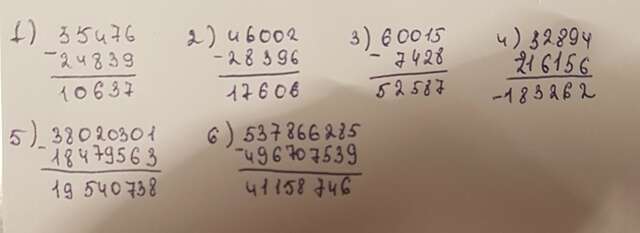 1) 35476
-24839
10637
2) 46002
-28396
17606
3) 60015
- 7428
52587
4) 32894
216156
-183262
5) 38020301
-18479563
19540738
6) 537866285
-496707539
41158746